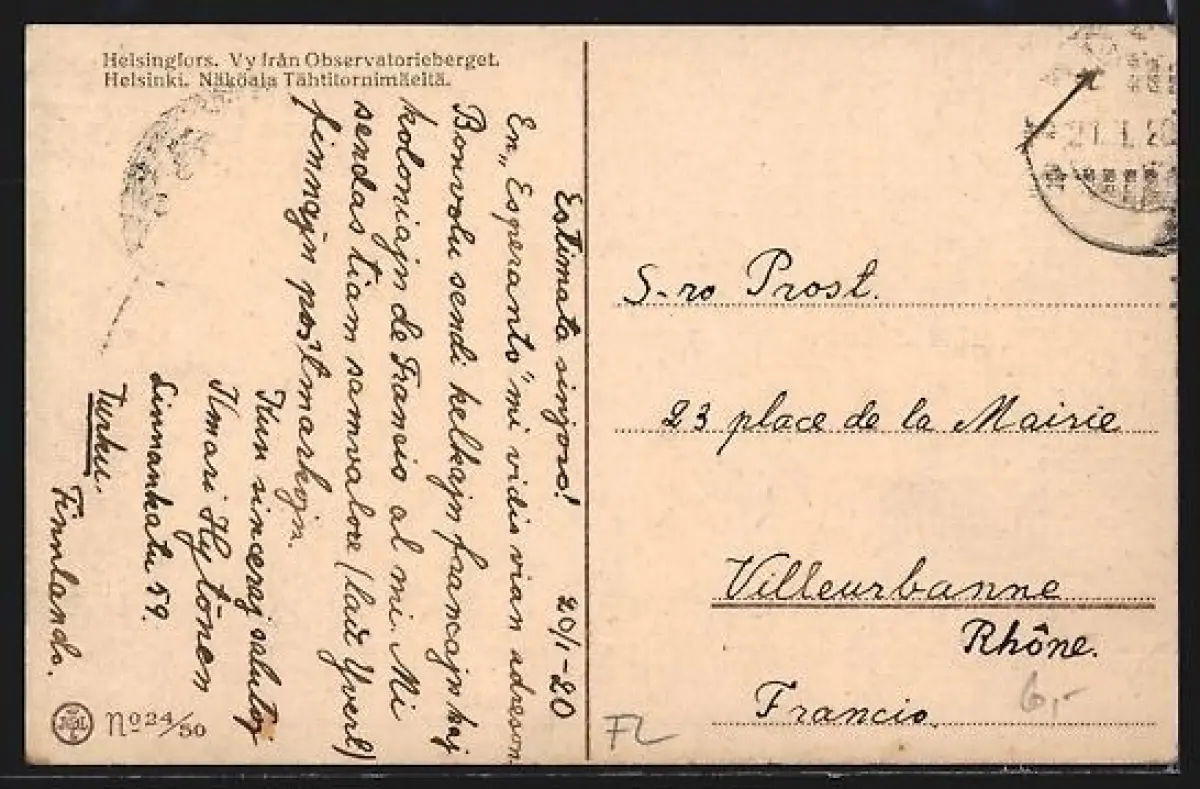 Helsingfors. Vy från Observatorieberget.
Helsinki. Näköala Tähtitornimäeltä.
Estimata sinjoro! 20/1-20
En „Esperanto" mi vidis vian adreson.
Bonvolu sendi kelkajn francajn kaj
koloniajn de Francio al mi. Mi
sendas tiam samvalore (laŭ Yvert)
finnajn poŝtmarkojn.
Kun sinceraj salutoj
Ilmari Hytönen
Linnankatu 59.
Turku.
Finnlando.
No 24/50
S-ro Prost.
23 place de la Mairie
Villeurbanne
Rhône.
Francio.
FL
6,-
21.1.20